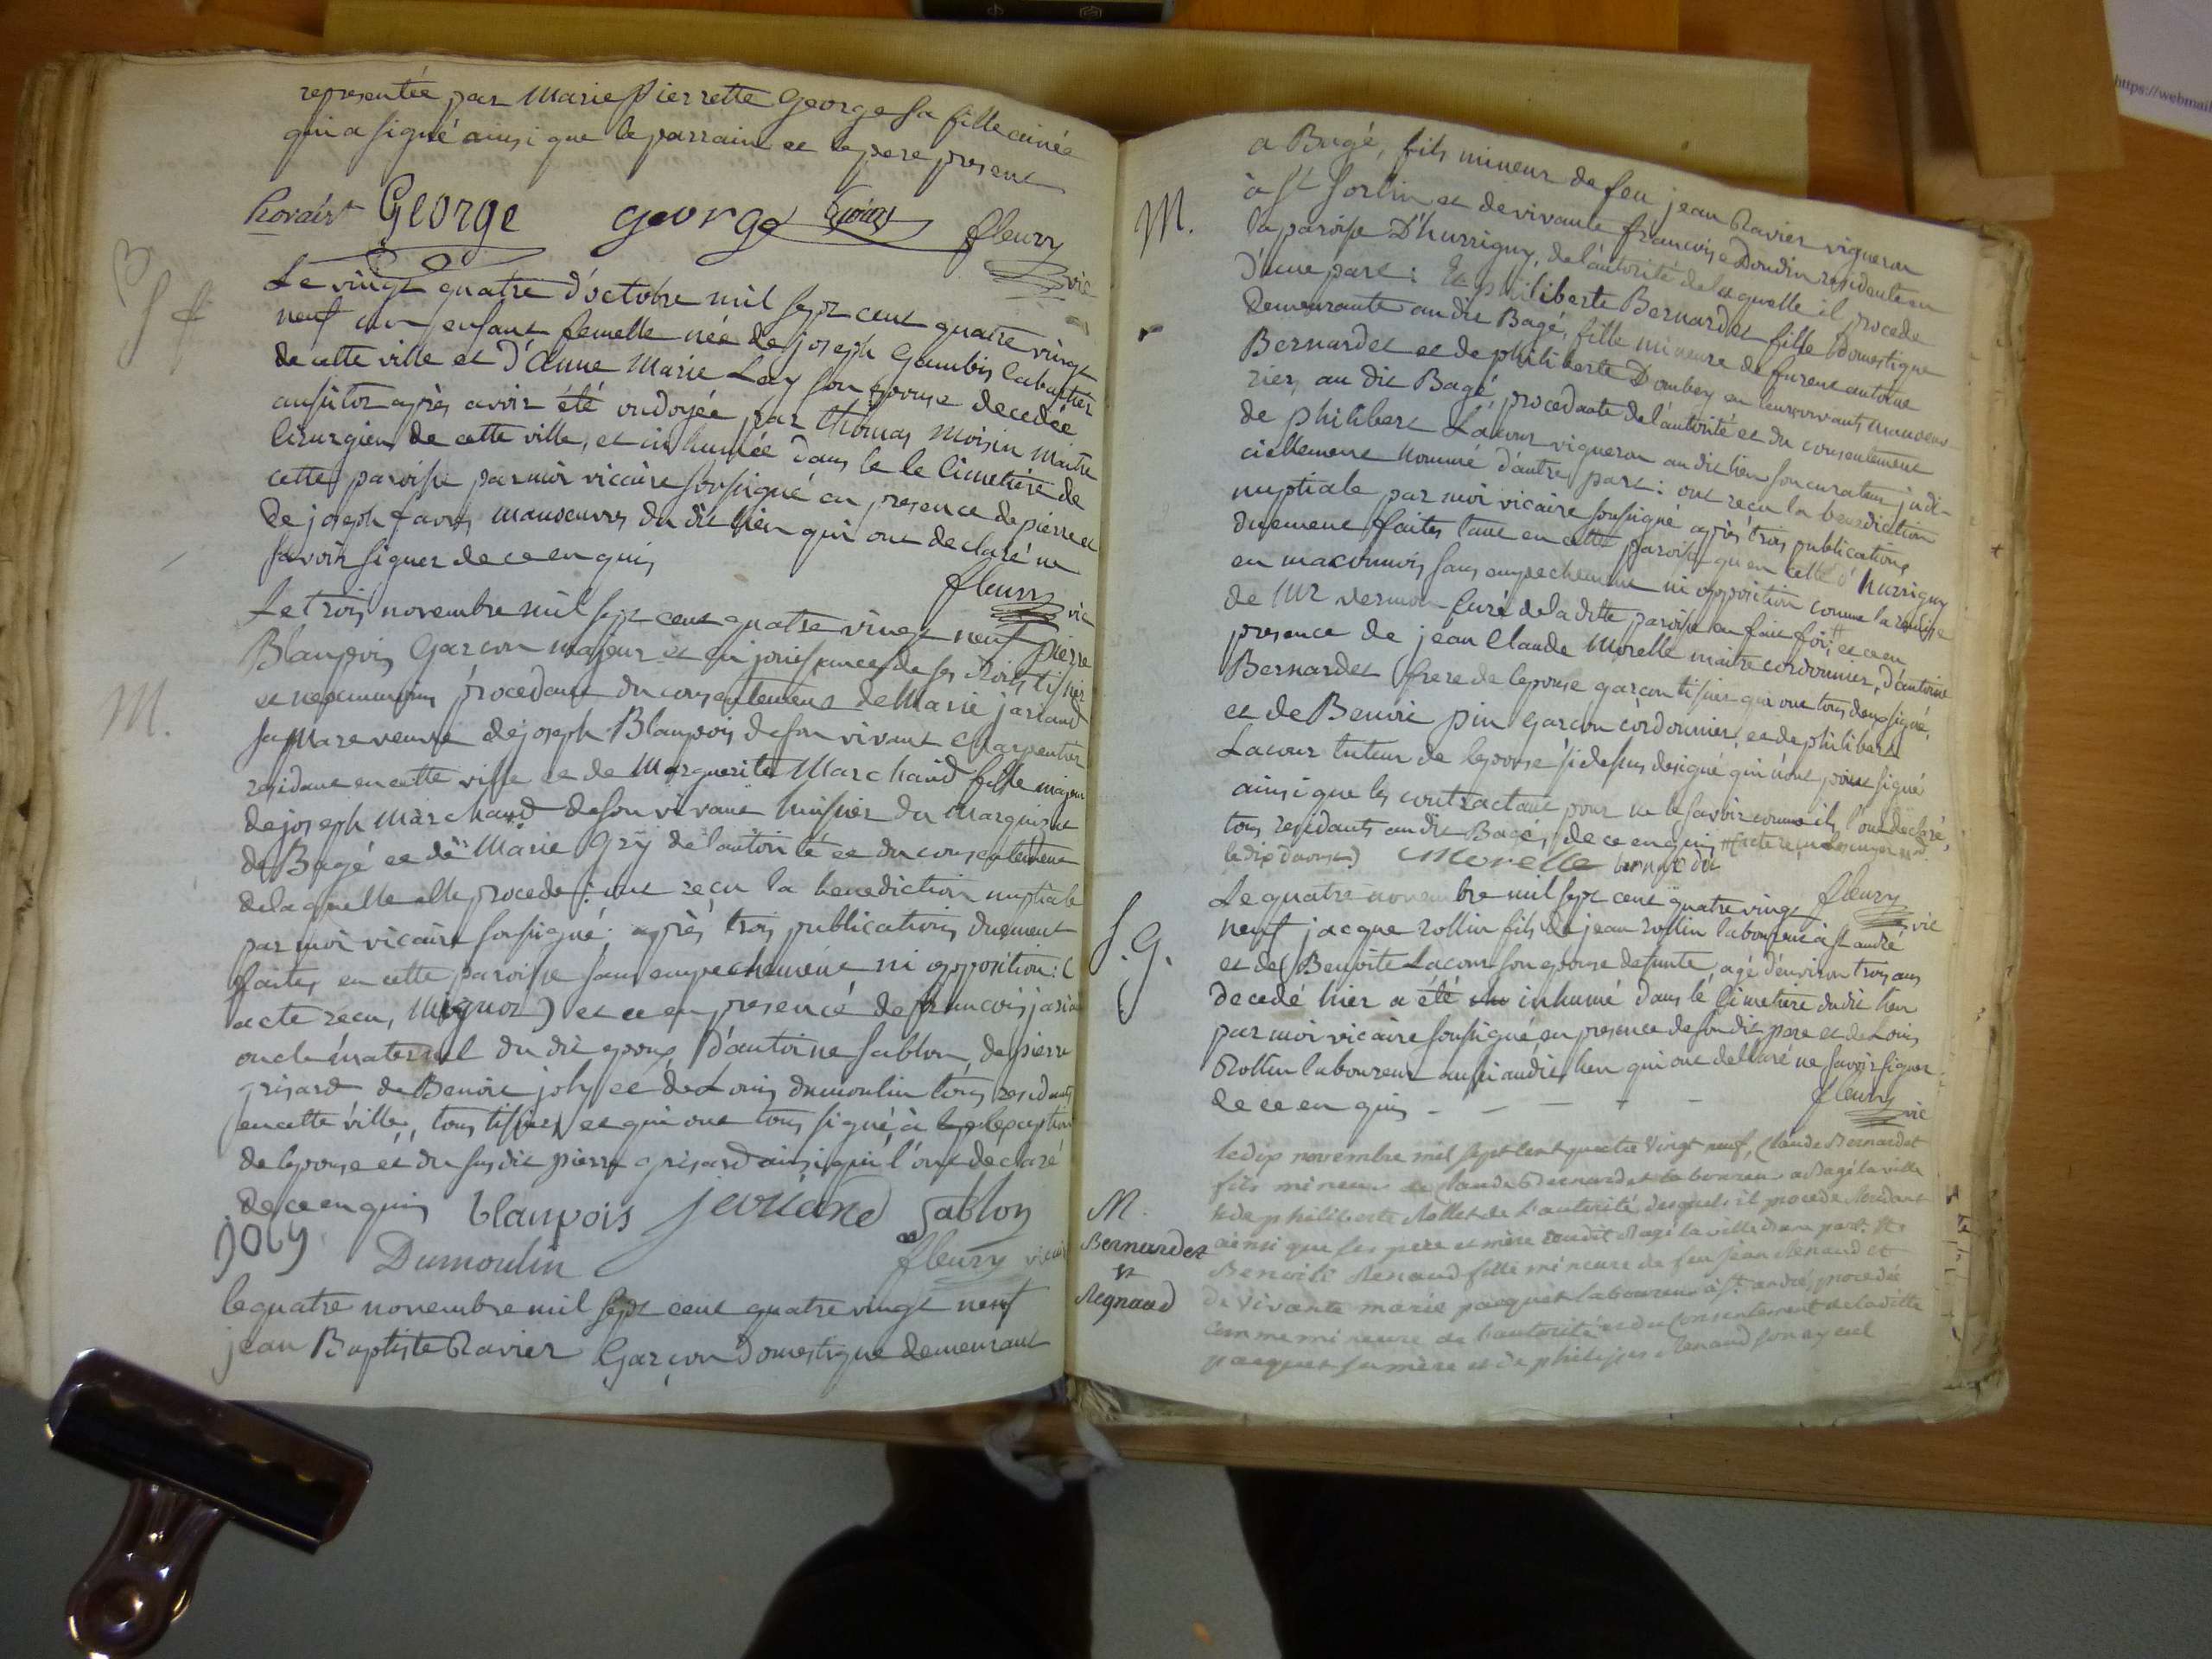 representée par Marie pierrette George sa fille ainée
qui a signé ainsi que le parrain et le pere present
George george fleury
vic
B
S f
Le vingt quatre d'octobre mil sept cent quatre vingt
neuf un enfant femelle née de joseph Gambis labastier
de cette ville et d'anne Marie Lay son epouse decedée
ausitot après avoir été ondoyée par thomas moisin maitre
cirurgien de cette ville, et inhumée dans le le Cimetiére de
cette paroisse par moi vicaire soussigné en presence de pierre et
de joseph favre manoeuvres du dit lieu qui ont declaré ne
savoir signer de ce enquis
fleury
vic
M.
Le trois novembre mil sept cent quatre vingt neuf pierre
Blanpois Garcon majeur et en jouissance de ses droits tissier
et neanmoins procedant du consentement de Marie jariand
sa Mare veuve de joseph Blanpois de son vivant charpentier
residant en cette ville et de Marguerite Marchand fille majeur
de joseph marchand de son vivant huissier du marquisat
de Bagé et de Marie Gry de l'autorité et du consentement
de laquelle elle procede: ont reçu la benediction nuptiale
par moi vicaire soussigné; après trois publications duement
faites en cette paroisse sans empechement ni opposition: (
acte recu, Mignot) et ce en presence de francois jariand
oncle maternel du dit epoux, d'antoine sablon, de pierre
grisard de Benoit joly et de Louis dumoulin tous residants
en cette ville, tous tissiers et qui ont tous signé, à l'exception
de lepouse et du susdit pierre grisard ainsi qui l'ont declaré
de ce enquis blanpois jariand Sablon
joly Dumoulin fleury vicaire
le quatre novembre mil sept cent quatre vingt neuf
jean Baptiste Ravier Garçon Domestique demeurant
M.
a Bagé, fils mineur de feu jean Ravier vigneron
à St Sorlin et de vivante francoise Dondin residente en
la paroisse D'hurrigny, de l'autorité de laquelle il procede
d'une part: Et philiberte Bernardet fille Domestique
demeurante au dit Bagé, fille mineure de furent antoine
Bernardet et de philiberte Dombey en leurs vivants manoeuv
riers au dit Bagé, procedante de l'autorité et du consentement
de philibert Lacour vigneron au dit lieu son curateur judi-
ciellement nommé d'autre part: ont reçu la benediction
nuptiale par moi vicaire soussigné après trois publications
duement faites tant en cette paroisse qu'en celle d'hurrigny
en maconnois sans empechement ni opposition comme la remise
de Mr vermon Curé de la ditte paroisse en fait foi, et ce en
presence de jean Claude Morelle maitre cordonnier, d'antoine
Bernardet frere de lepouse garçon tissier qui ont tous deux signé,
et de Benoit pin garcon cordonnier, et de philibert
Lacour tuteur de lepouse si dessus designé qui n'ont point signé
ainsi que les contractant pour ne le savoir comme ils l'ont declaré,
tous residants au dit Bagé, de ce enquis
le dix d'aoust) Morelle bernarde
fleury
vic
S. G.
Le quatre novembre mil sept cent quatre vingt
neuf jacque rollin fils de jean rollin laboureur à st andré
et de Benoite Lacour son epouse defunte, agé d'environ trois ans
decedé hier a été inhumé dans le Cimetiere du dit lieu
par moi vicaire soussigné, en presence de son dit pere et de Louis
Rollin laboureur aussi audit lieu qui ont declaré ne savoir signer
de ce en quis - - - - - fleury
vic
M.
Bernardet
et
Regnaud
le dix novembre mil sept cent quatre vingt neuf, Claude Bernardet
fils mineur de Claude Bernardet laboureur a Bagé la ville
& de philiberte Rollet de l'autorité desquels il procede
ainsi que ses pere et mère audit Bagé la ville d'une part. Et
Benoite Renaud fille mineure de feu jean Renaud et
de vivante marie pacquet laboureur à St andré, procedée
comme mineure de l'autorité et du consentement de laditte
pacquet sa mère et de philippes Renaud son ayeul
https://webmail